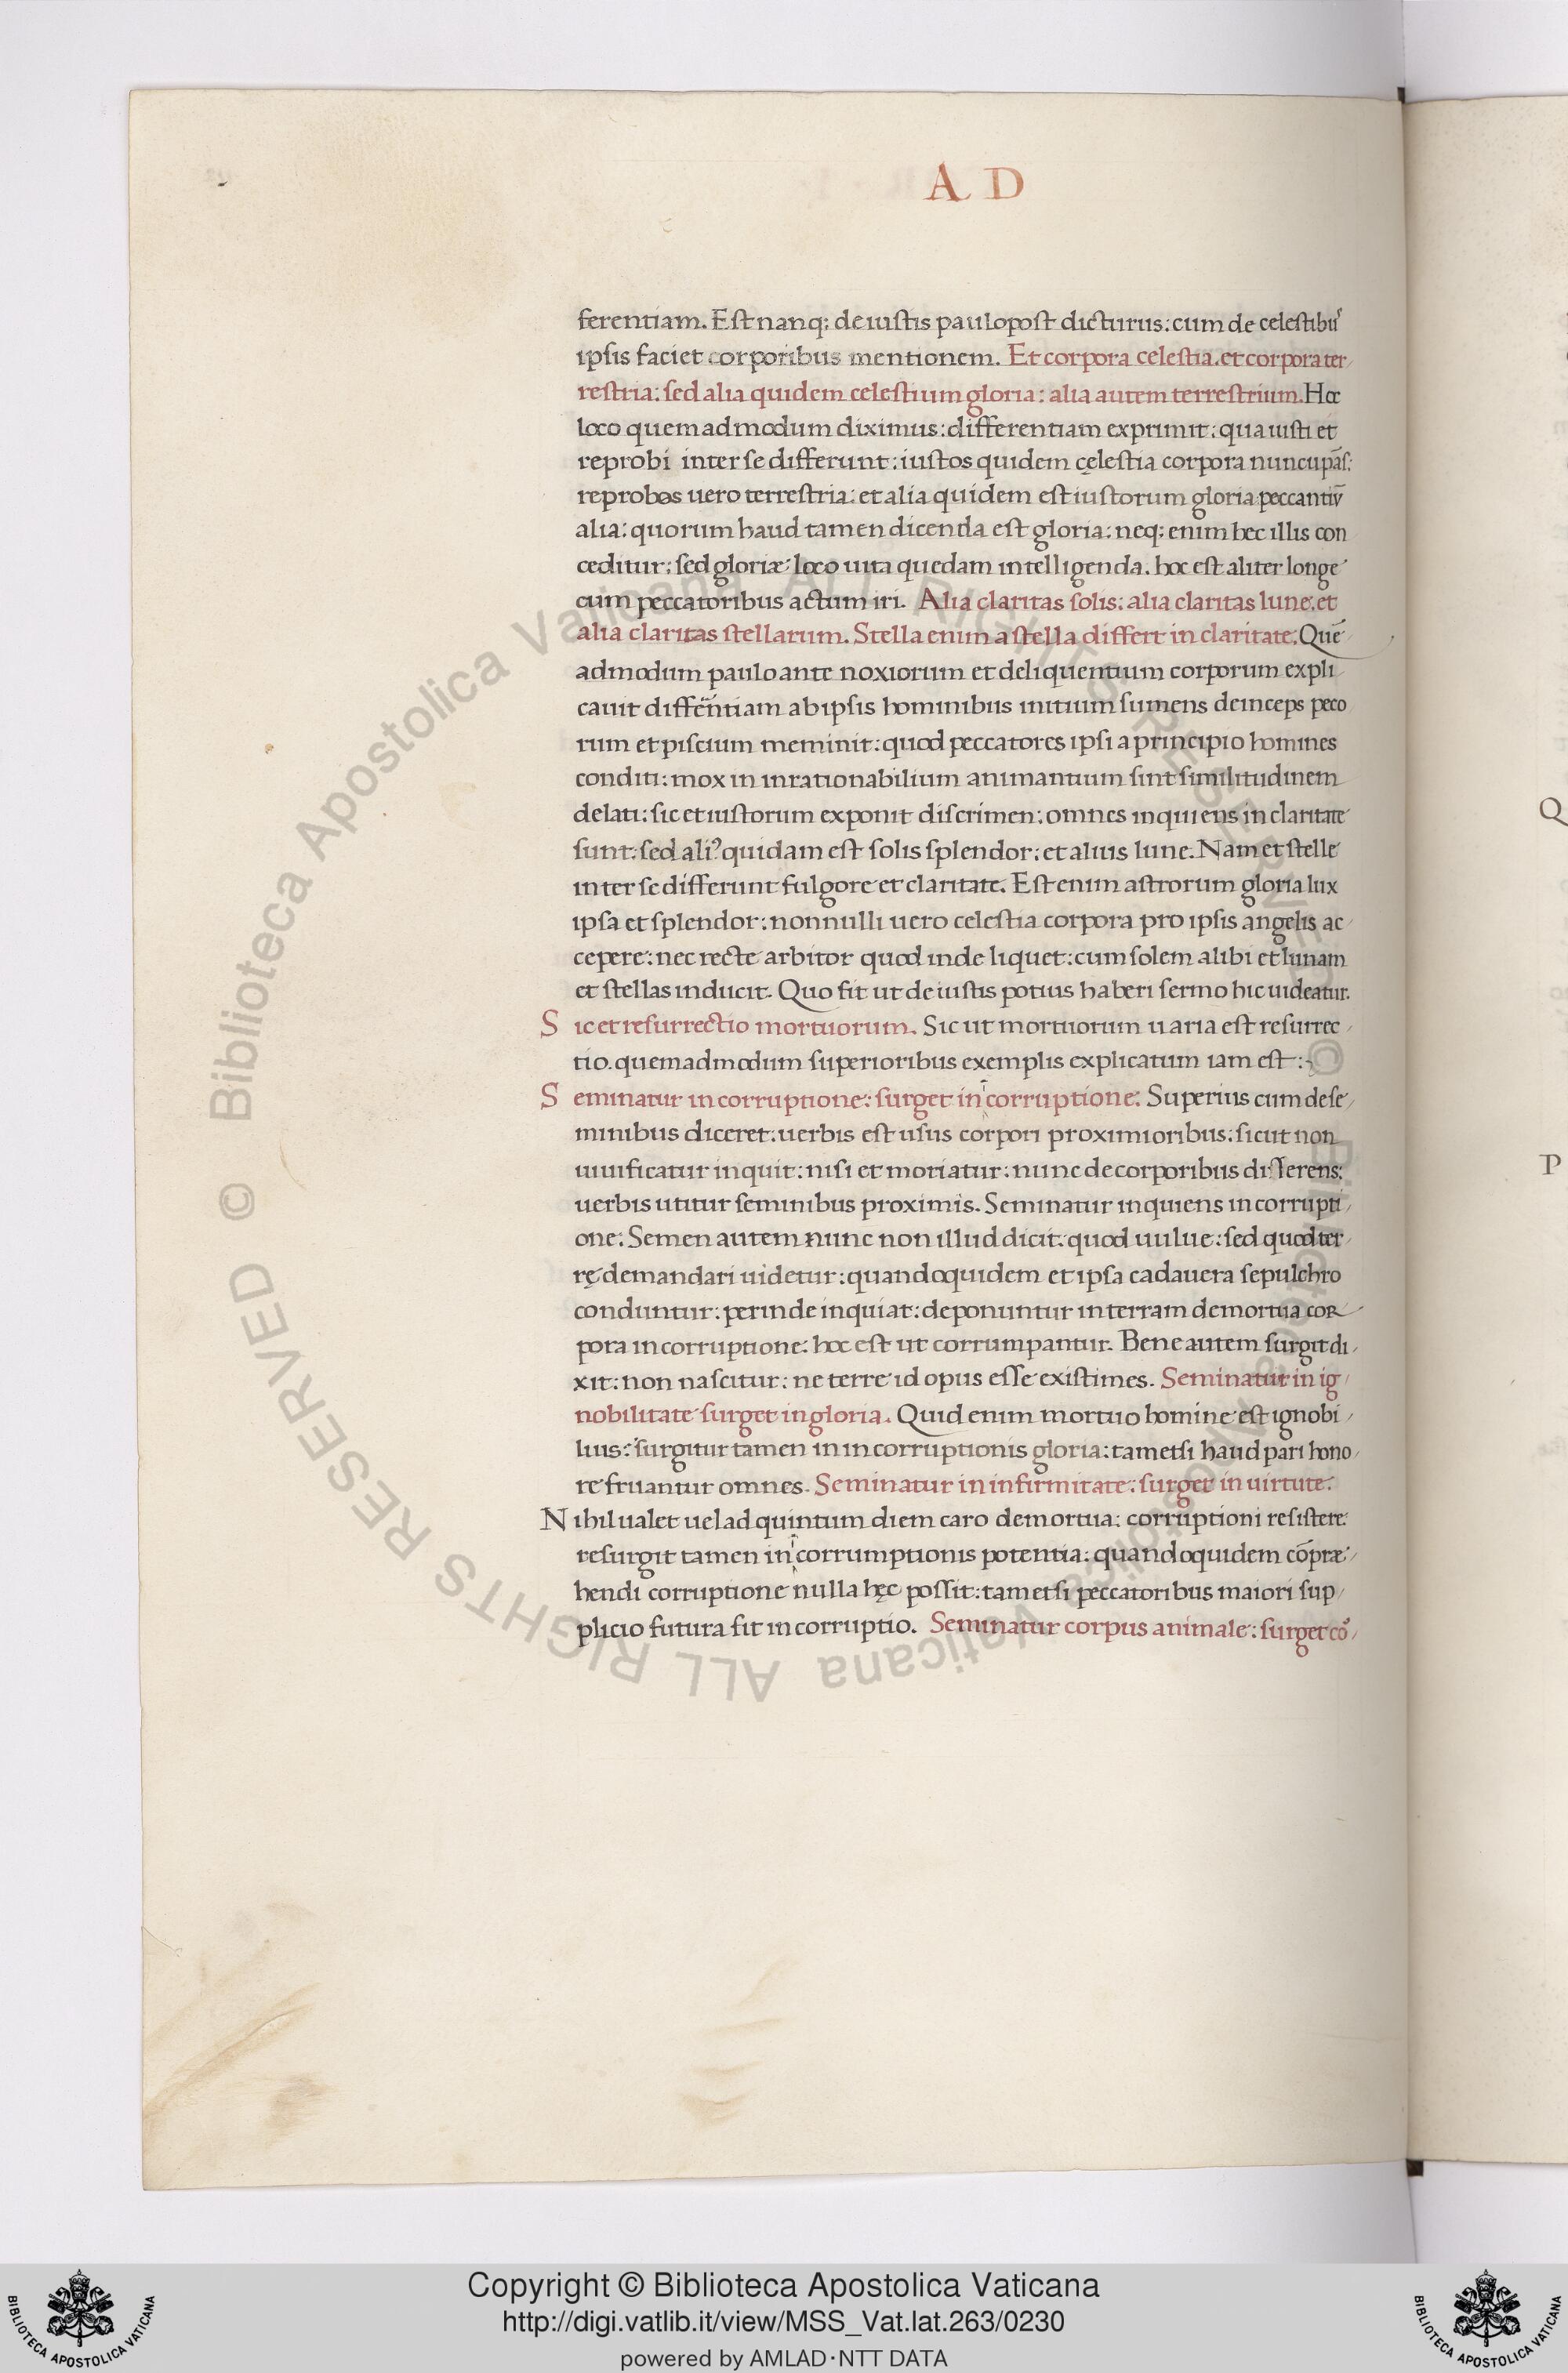 A D
ferentiam. Est nanq; de iustis paulopost dicturus: cum de celestibus
ipsis faciet corporibus mentionem. Et corpora celestia. et corpora ter
restria: sed alia quidem celestium gloria: alia autem terrestrium. Hoc
loco quemadmodum diximus: differentiam exprimit: qua iusti et
reprobi inter se differunt: iustos quidem cęlestia corpora nuncupãs:
reprobos uero terrestria: et alia quidem est iustorum gloria peccantiũ
alia: quorum haud tamen dicenda est gloria: neq; enim hec illis con
ceditur: sed gloriæ loco uita quedam intelligenda. hoc est aliter longe
cum peccatoribus actum iri. Alia claritas solis: alia claritas lune: et
alia claritas stellarum. Stella enim a stella differt in claritate. Quẽ
admodum paulo ante noxiorum et deliquentium corporum expli
cauit differentiam ab ipsis hominibus initium sumens deinceps peco
rum et piscium meminit: quod peccatores ipsi a principio homines
conditi: mox in inrationabilium animantium sint similitudinem
delati: sic et iustorum exponit discrimen: omnes inquiens in claritate
sunt: sed ali⁹ quidam est solis splendor: et alius lune. Nam et stelle
inter se differunt fulgore et claritate. Est enim astrorum gloria lux
ipsa et splendor: nonnulli uero celestia corpora pro ipsis angelis ac
cepere: nec recte arbitor quod inde liquet: cum solem alibi et lunam
et stellas inducit. Quo fit ut de iustis potius haberi sermo hic uideatur.
S ic et resurrectio mortuorum. Sic ut mortuorum uaria est resurrec
tio. quemadmodum superioribus exemplis explicatum iam est:
S eminatur in corruptione: surget in corruptione: Superius cum de se
minibus diceret: uerbis est usus corpori proximioribus: sicut non
uiuificatur inquit: nisi et moriatur: nunc de corporibus disserens:
uerbis utitur seminibus proximis. Seminatur inquiens in corrupti
one: Semen autem nunc non illud dicit: quod uulue: sed quod ter
rę demandari uidetur: quandoquidem et ipsa cadauera sepulchro
conduntur: perinde inquiat: deponuntur in terram demortua cor
pora in corruptione: hoc est ut corrumpantur. Bene autem surgit di
xit: non nascitur: ne terre id opus esse existimes. Seminatur in ig
nobilitate surget in gloria. Quid enim mortuo homine est ignobi
lius: surgitur tamen in incorruptionis gloria: tametsi haud pari hono
re fruantur omnes. Seminatur in infirmitate: surget in uirtute.
N ihil ualet uel ad quintum diem caro demortua: corruptioni resistere:
resurgit tamen in corrumptionis potentia: quandoquidem cõpræ
hendi corruptione nulla hęc possit: tametsi peccatoribus maiori sup
plicio futura sit incorruptio. Seminatur corpus animale: surget co
Q
P
© Biblioteca Apostolica Vaticana ALL RIGHTS RESERVED © Biblioteca Apostolica Vaticana ALL RIGHTS RESERVED
Copyright © Biblioteca Apostolica Vaticana
http://digi.vatlib.it/view/MSS_Vat.lat.263/0230
powered by AMLAD·NTT DATA
BIBLIOTECA APOSTOLICA VATICANA
BIBLIOTECA APOSTOLICA VATICANA